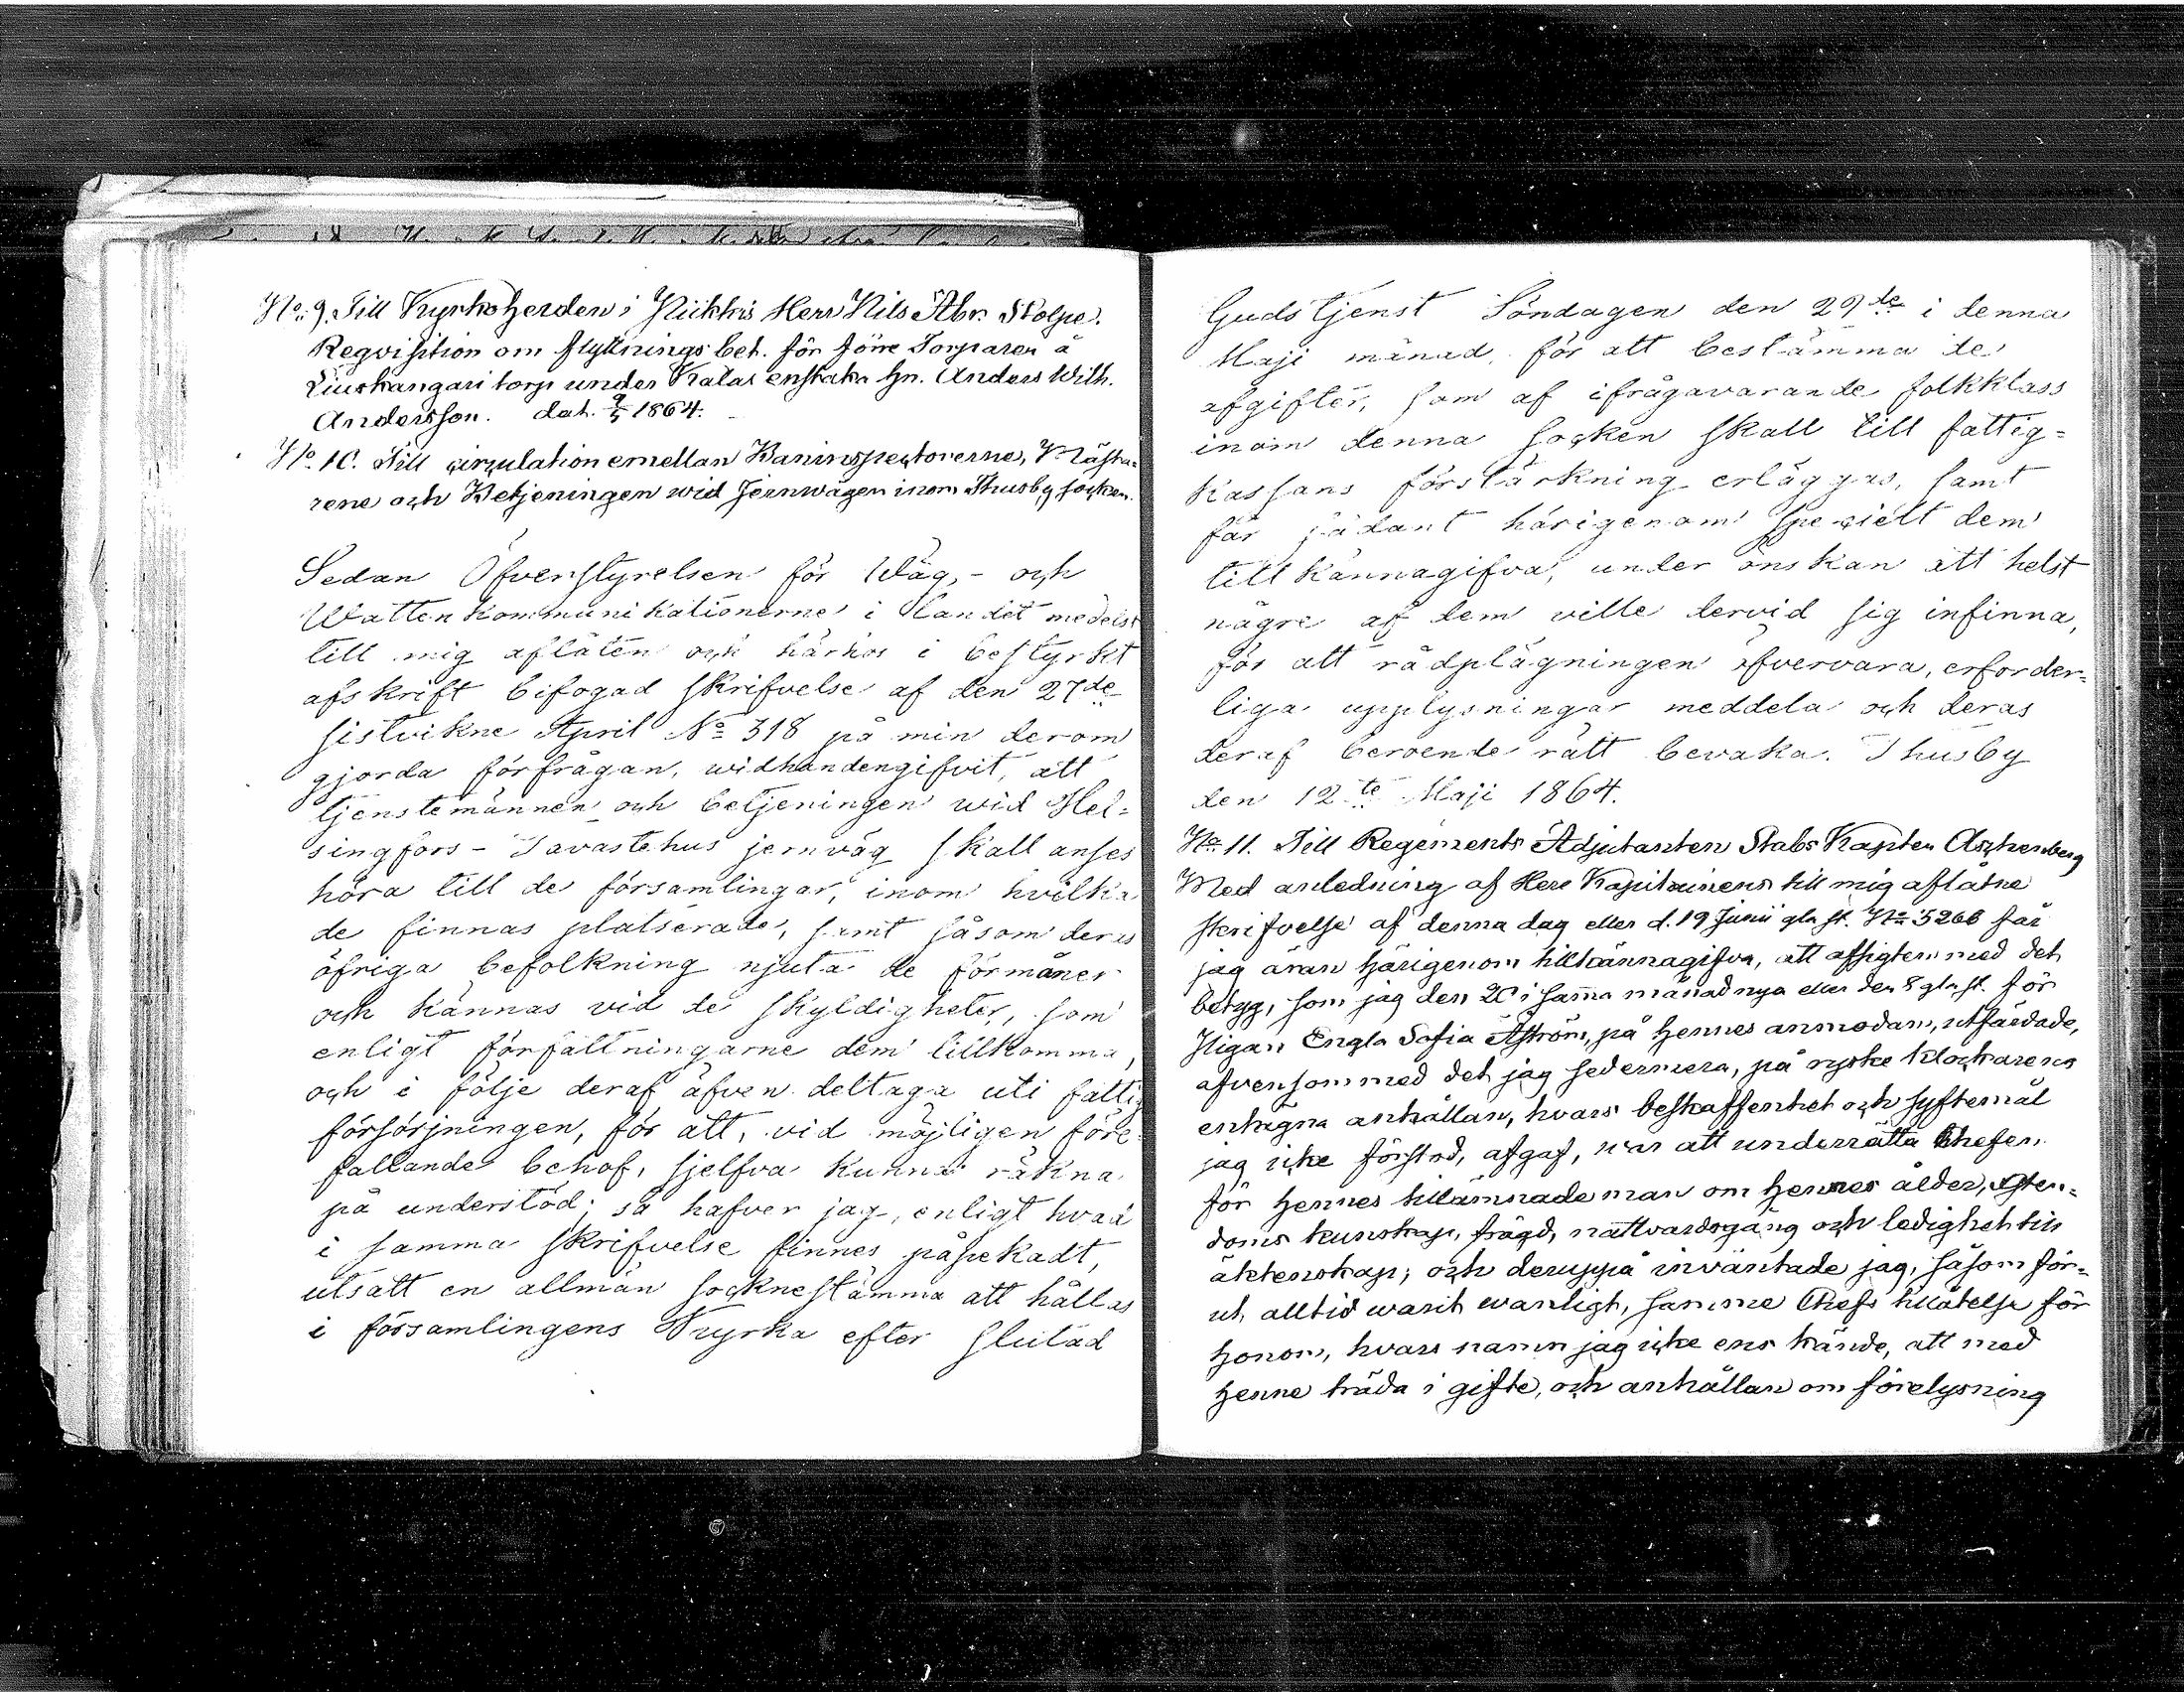 No. 9. Till Kyrkoherden i Kiikkis Herr Nils Abr. Stolpe.
Reqvisition om flyttningsbet. för förre Torparen å
Liuskangari torp under Kalas enstaka hn. Anders Wilh.
Andersson. dat. 9/5 1864.
No. 10. Till circulation emellan Baninspectorerne, Mästa-
rene och Betjeningen wid Jernwägen inom Thusby socken.
Sedan Öfverstyrelsen för Wäg,- och
Wattenkommunikationerne i landet medelst
till mig aflåten och härhos i bestyrkt
afskrift bifogad skrifvelse af den 27de
sistvikne April No 318 på min derom
gjorda förfrågan, widhandengifvit, att
tjenstemännen och betjeningen wid Hel-
singfors - Tavastehus jernväg skall anses
höra till de församlingar, inom hvilka
de finnas platserade, samt såsom deras
öfriga befolkning njuta de förmåner
och kännas vid de skyldigheter, som
enligt författningarne dem tillkomma,
och i följe deraf äfven deltaga uti fattig
försörjningen, för att, vid möjligen före-
fallande behof, sjelfva kunna räkna
på understöd; så hafver jag, enligt hvad
i samma skrifvelse finnes påpekadt,
utsatt en allmän socknestämma att hållas
i församlingens Kyrka efter slutad
Gudstjenst Söndagen den 29de i denna
Maji månad, för att bestämma de
afgifter, som af ifrågavarande folkklass
inom denna socken skall till fattig-
kassans förstärkning erläggas, samt
får sådant härigenom specielt dem
tillkännagifva, under önskan att helst
någre af dem ville dervid sig infinna,
för att rådplägningen öfvervara, erforder-
liga upplysningar meddela och deras
deraf beroende rätt bevaka. Thusby
den 12te Maji 1864.
No. 11. Till Regements Adjutanten Stabs Kapten Aschenberg
Med anledning af Herr Kapitainens till mig aflåtne
skrifvelse af denna dag eller d. 19 Junii gla st. No 5268 får
jag äran härigenom tillkännagifva, att afsigten med det
betyg, som jag den 20 i samma månad nya eller den 8 gla st. för
Pigan Engla Sofia Åström, på hennes anmodan, utfärdade,
äfvensom med det jag sedermera, på ryske klockarens
enträgna anhållan, hvars beskaffenhet och syftemål
jag icke förstod, afgaf, war att underrätta Chefen
för hennes tillämnade man om hennes ålder, Christen-
doms kunskap, frägd, nattvardsgång och ledighet till
äktenskap; och deruppå inväntade jag, såsom för-
ut, alltid warit wanligt, samme Chefs tillåtelse för
honom, hvars namn jag icke ens kände, att med
henne träda i gifte, och anhållan om förelysning